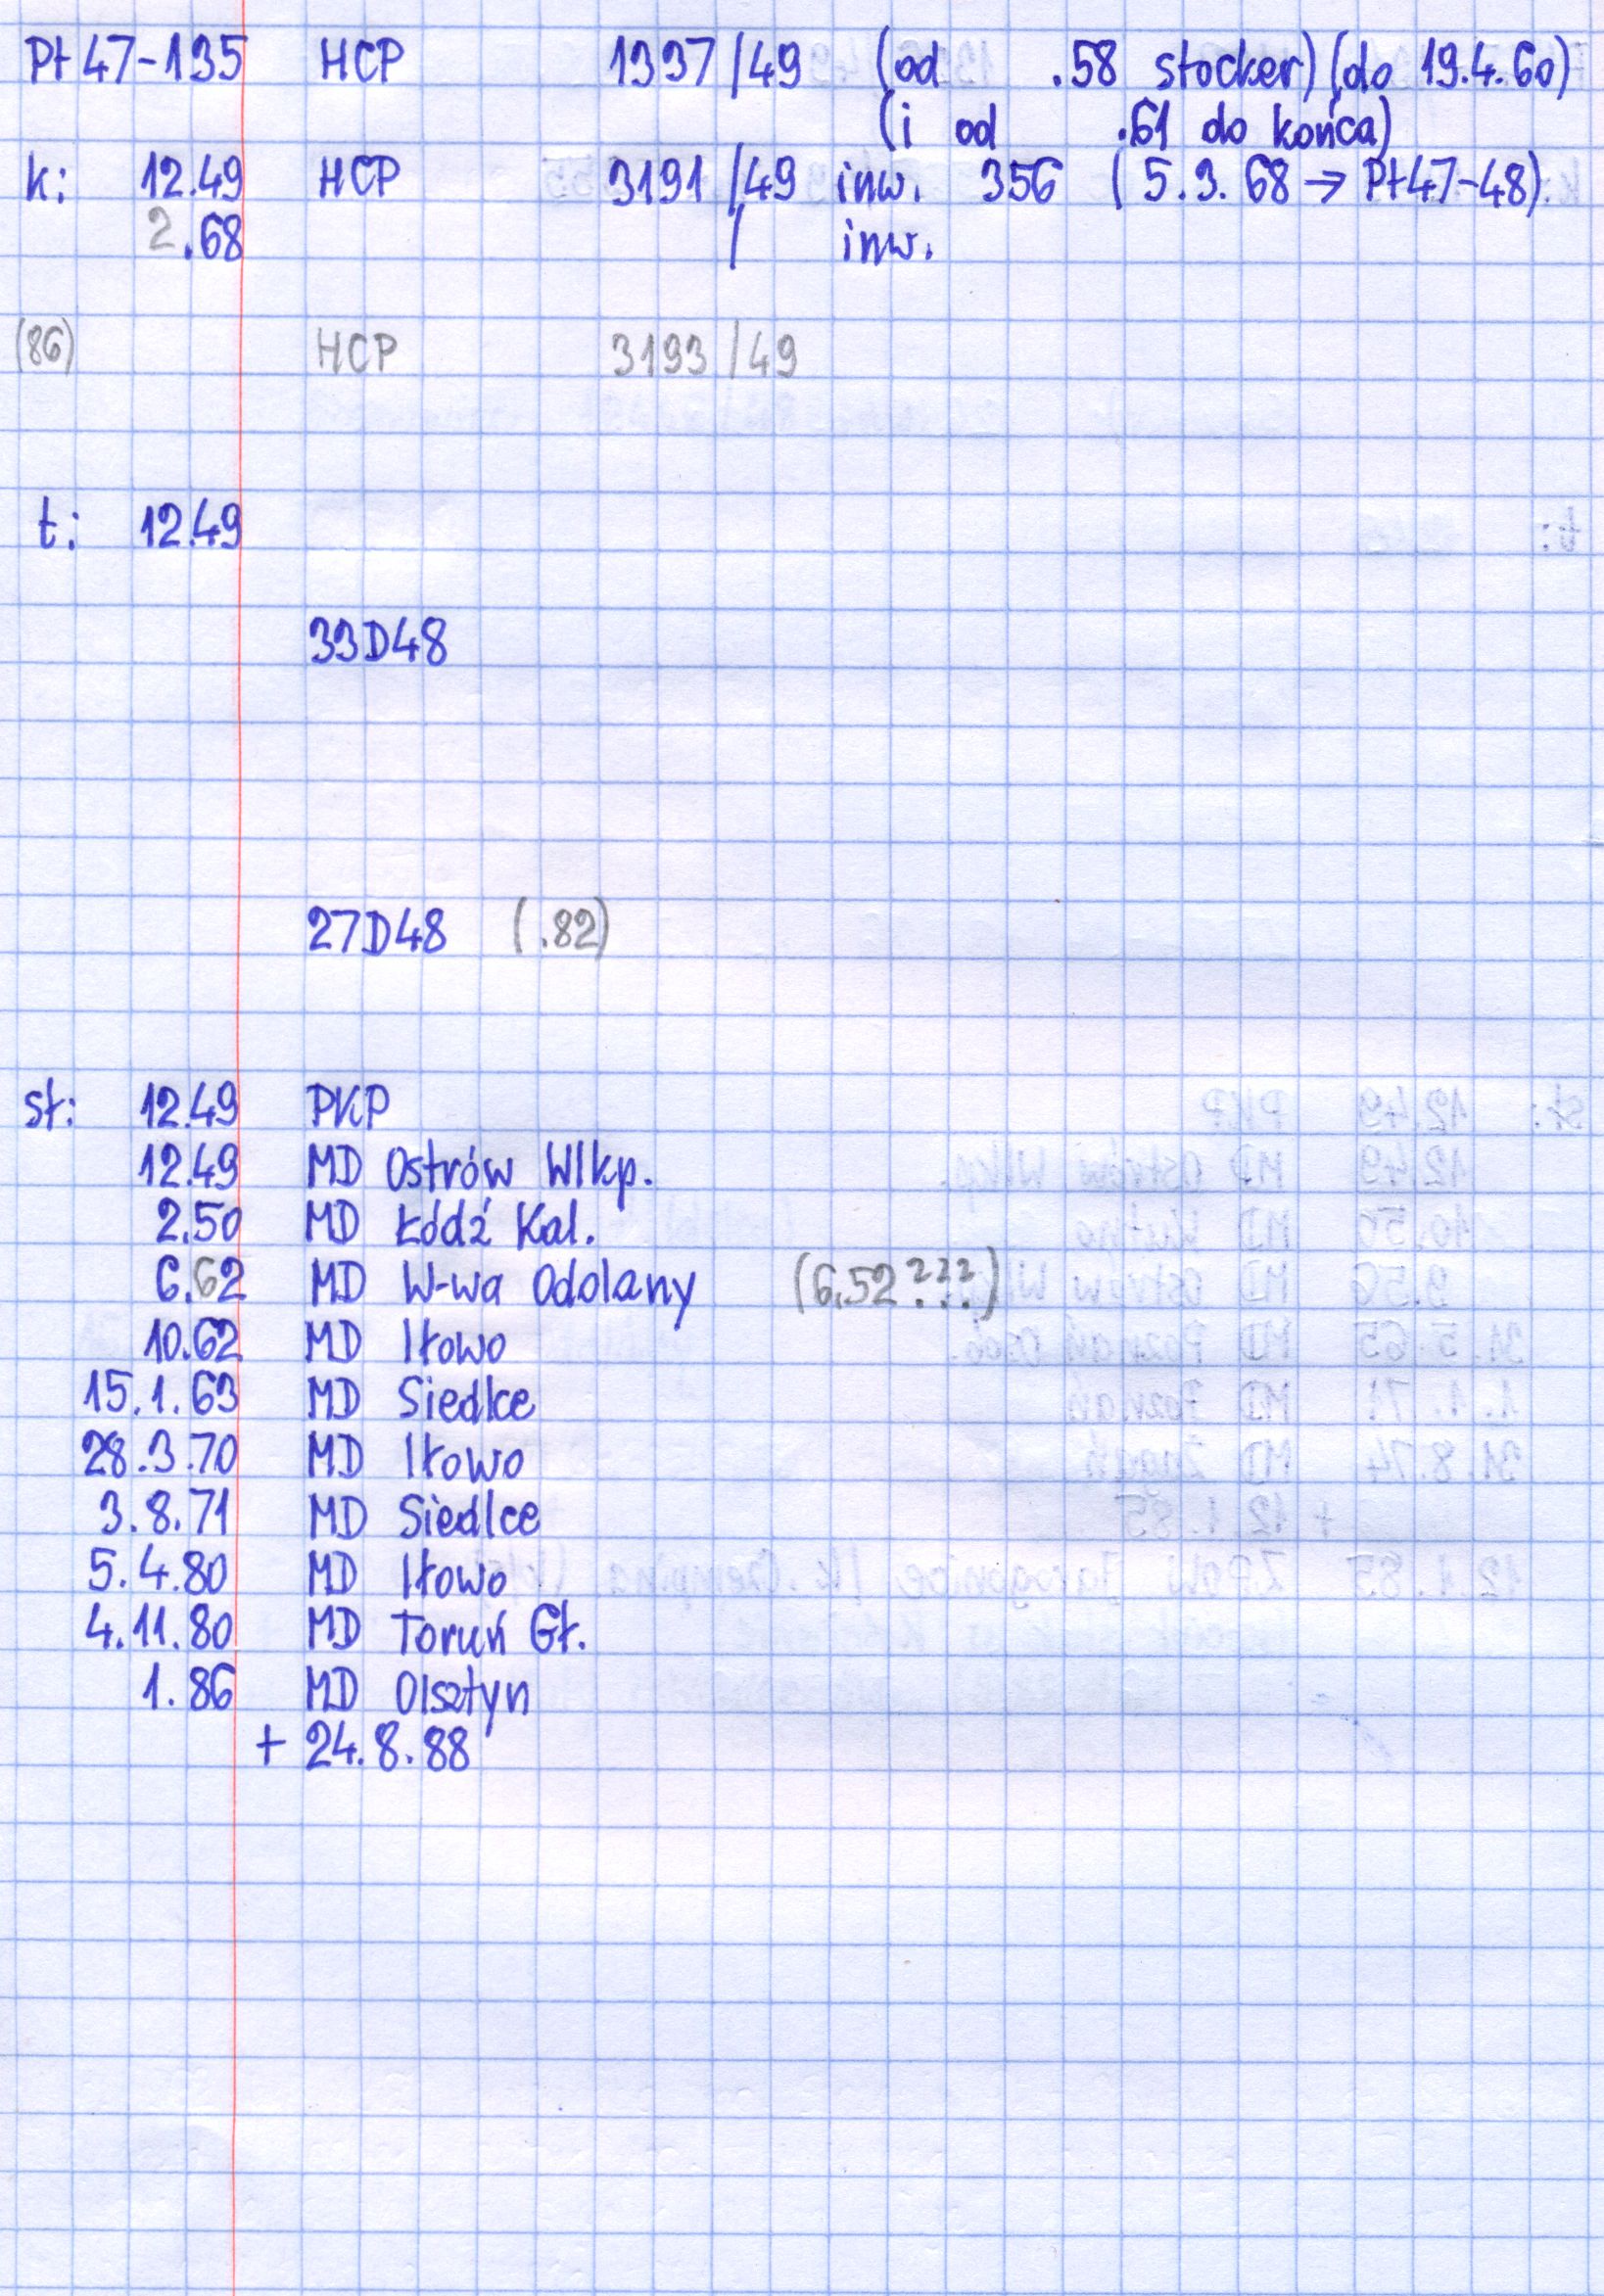 Pt47-135 HCP 1337/49 (od .58 stocker) (do 19.4.60)
(i od .61 do końca)
k: 12.49 HCP 3191/49 inw. 356 (5.3.68 → Pt47-48)
2.68 / inw.
(86) HCP 3193/49
t: 12.49
33D48
27D48 (.82)
st: 12.49 PKP
12.49 MD Ostrów Wlkp.
2.50 MD Łódź Kal.
6.62 MD W-wa Odolany (6.52???)
10.62 MD Iłowo
15.1.63 MD Siedlce
28.3.70 MD Iłowo
3.8.71 MD Siedlce
5.4.80 MD Iłowo
4.11.80 MD Toruń Gł.
1.86 MD Olsztyn
+ 24.8.88